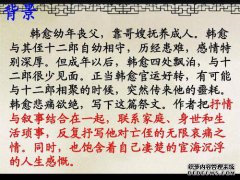 背景
韩愈幼年丧父，靠哥嫂抚养成人。韩愈
与其侄十二郎自幼相守，历经患难，感情特
别深厚。但成年以后，韩愈四处飘泊，与十
二郎很少见面。正当韩愈官运好转，有可能
与十二郎相聚的时候，突然传来他的噩耗。
韩愈悲痛欲绝，写下这篇祭文。作者把抒情
与叙事结合在一起，联系家庭、身世和生
活琐事，反复抒写他对亡侄的无限哀痛之
情。同时，也饱含着自己凄楚的宦海沉浮
的人生感慨。